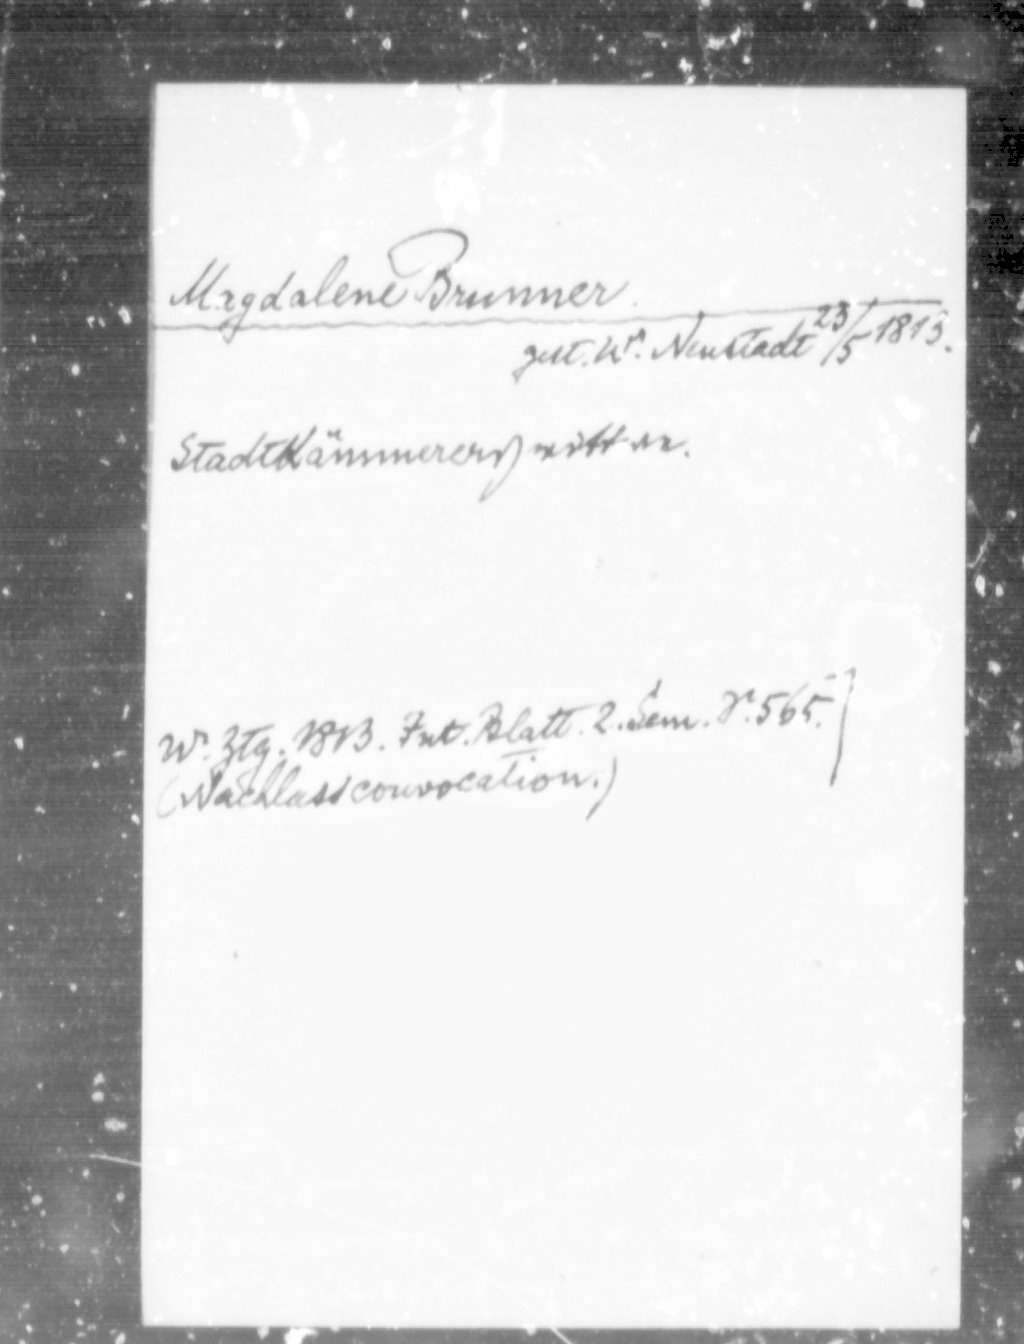 Magdalene Brunner.
gest. Wr. Neustadt 23/5 1813.
Stadtkämmererswittwe.
Wr. Ztg. 1813. Int. Blatt. 2. Sem. S. 565.
(Nachlassconvocation.)